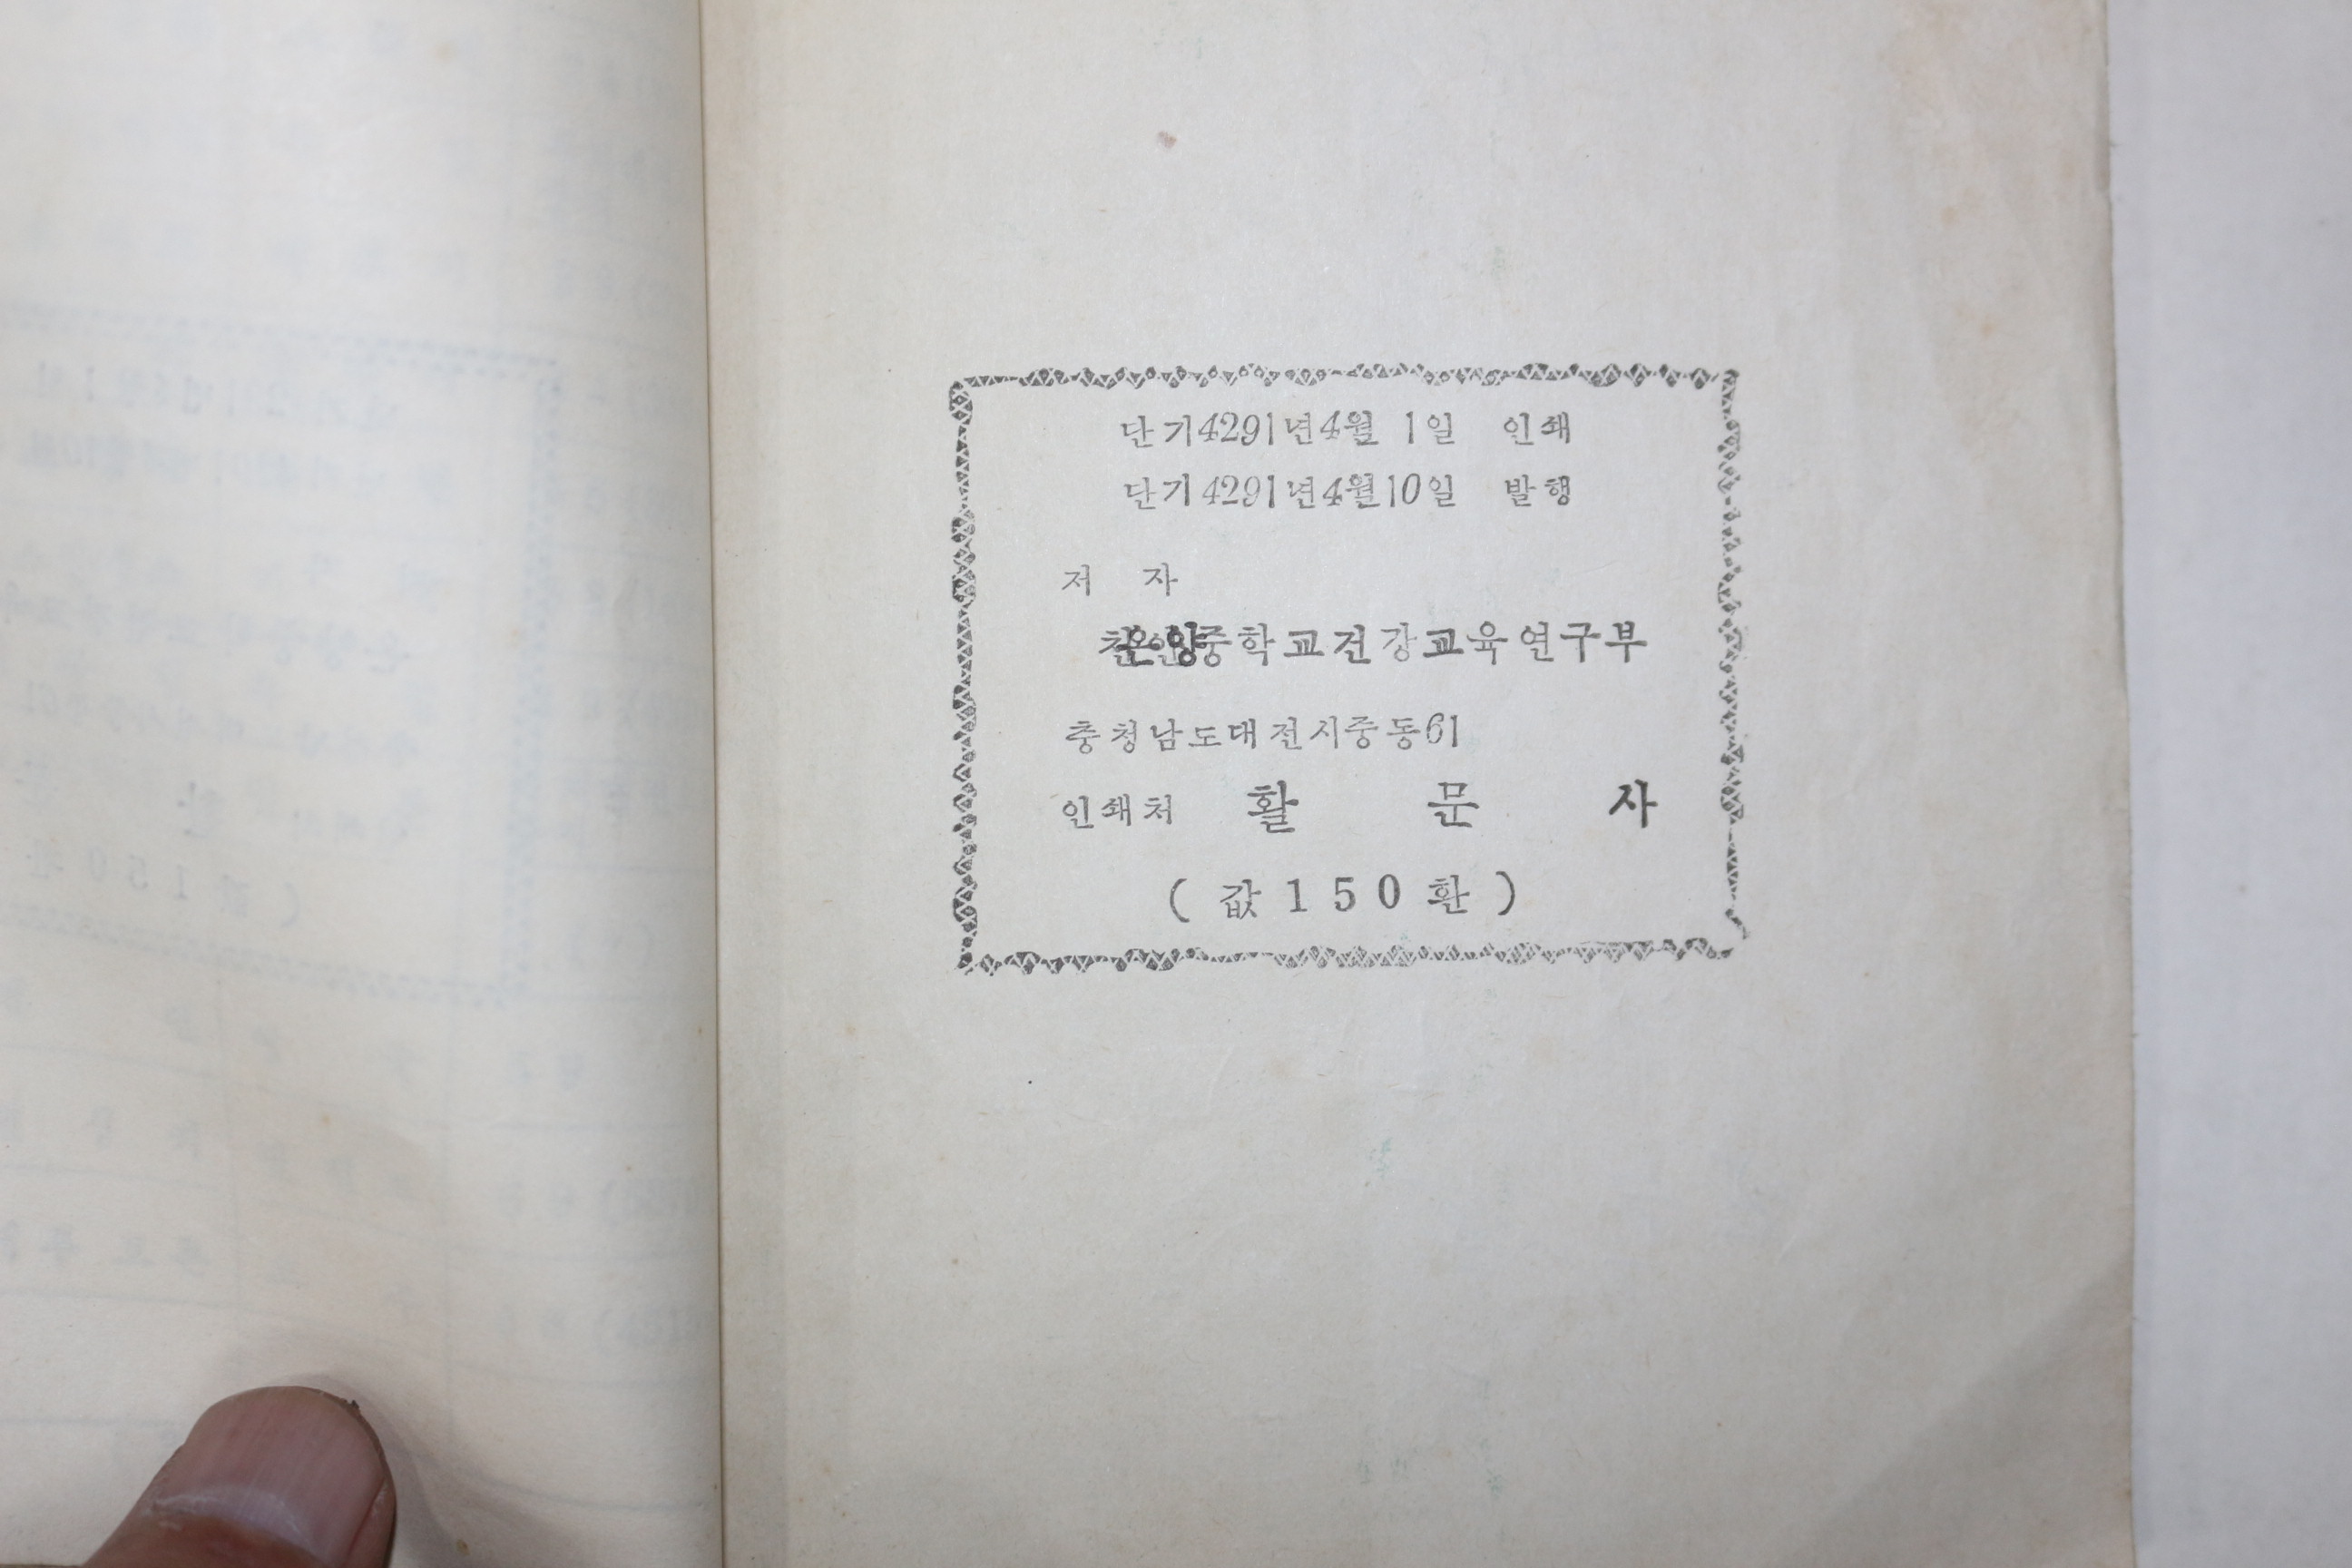 단기4291년4월 1일 인쇄
단기4291년4월10일 발행
저 자
온양중학교건강교육연구부
충청남도대전시중동61
인쇄처 활 문 사
( 값 1 5 0 환 )